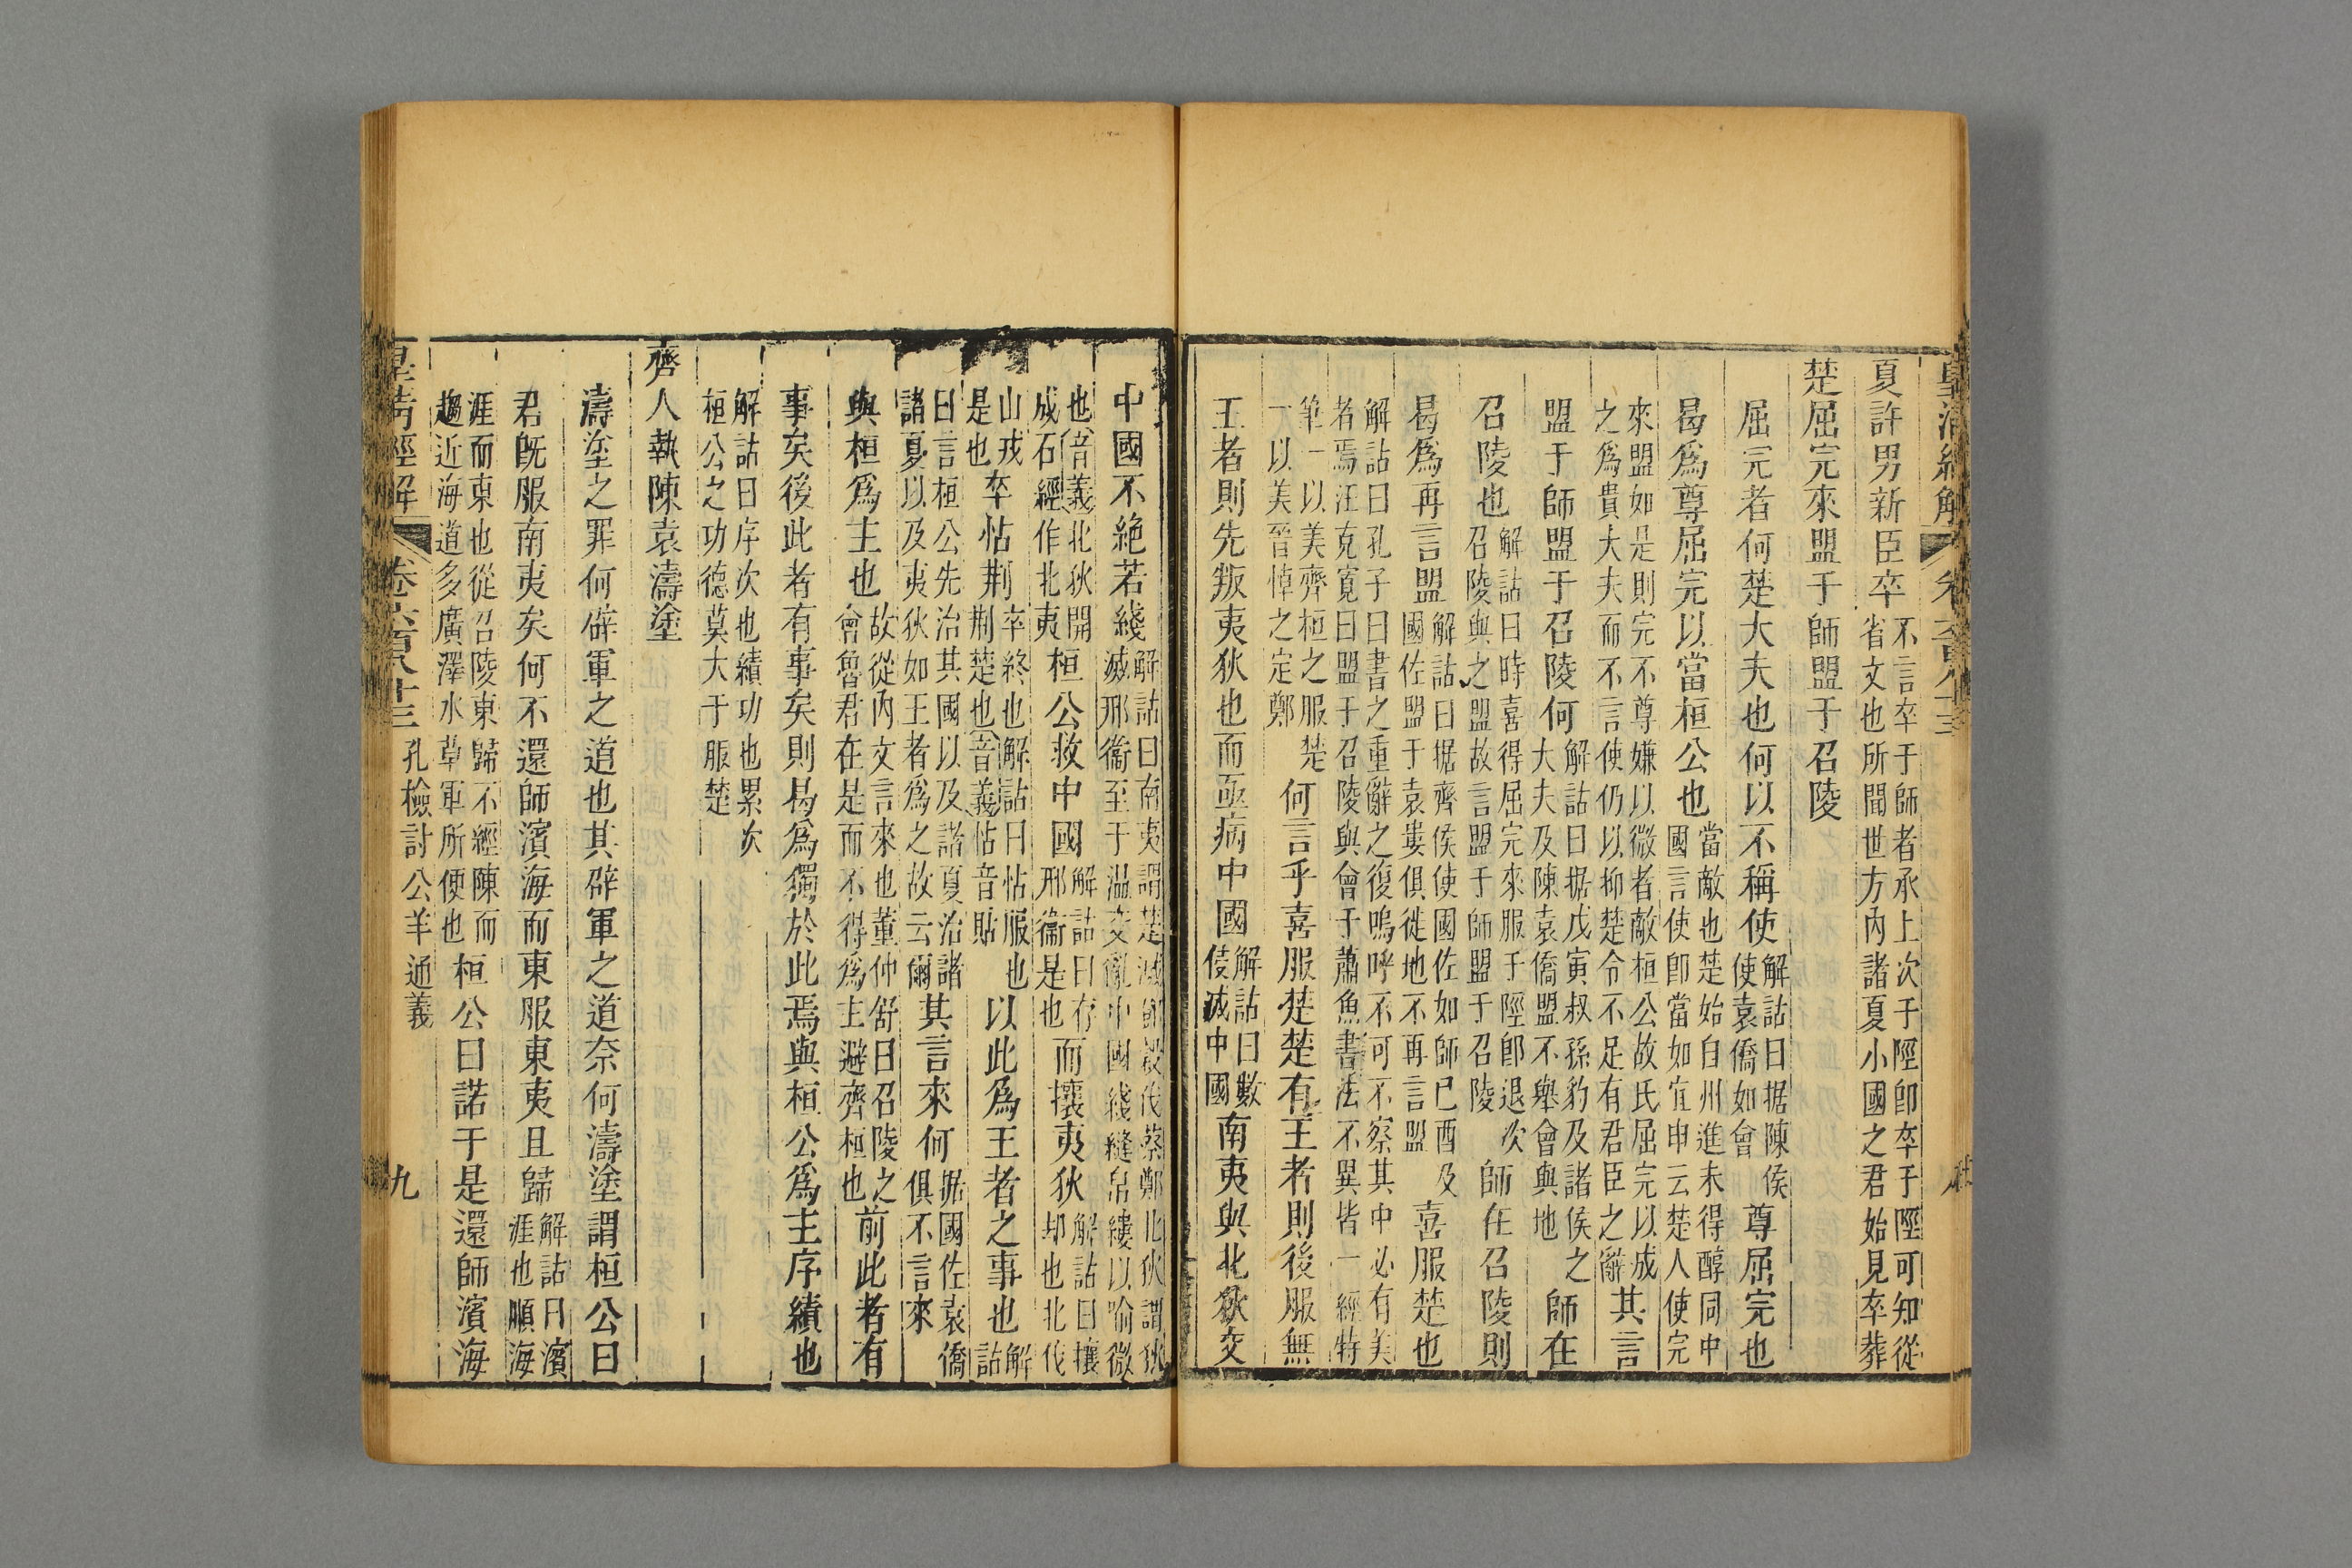 皇清經解 卷六百八十三
夏許男新臣卒不言卒于師者承上次于陘卽卒于陘可知從
省文也所聞世方內諸夏小國之君始見卒葬
楚屈完來盟于師盟于召陵
屈完者何楚大夫也何以不稱使解詁曰据陳侯
使袁僑如會尊屈完也
曷爲尊屈完以當桓公也當敵也楚始自州進未得醇同中
國言使卽當如宜申云楚人使完
來盟如是則完不尊嫌以微者敵桓公故氏屈完以成
之爲貴大夫而不言使仍以抑楚令不足有君臣之辭其言
盟于師盟于召陵何解詁曰据戊寅叔孫豹及諸侯之
大夫及陳袁僑盟不舉會與地師在
召陵也解詁曰時喜得屈完來服于陘卽退次
召陵與之盟故言盟于師盟于召陵師在召陵則
曷爲再言盟解詁曰据齊侯使國佐如師己酉及
國佐盟于袁婁俱徙地不再言盟喜服楚也
解詁曰孔子曰書之重辭之復嗚呼不可不察其中必有美
者焉汪克寬曰盟于召陵與會于蕭魚書法不異皆一經特
筆一以美齊桓之服楚
一以美晉悼之定鄭何言乎喜服楚楚有王者則後服無
王者則先叛夷狄也而亟病中國解詁曰數
侵滅中國南夷與北狄交
中國不絕若綫解詁曰南夷謂楚滅鄧穀伐蔡鄭北狄謂狄
滅邢衞至于溫交亂中國綫縫帛縷以喻微
也音義北狄開
成石經作北夷桓公救中國解詁曰存
邢衞是也而攘夷狄解詁曰攘
却也北伐
山戎
是也卒怗荆卒終也解詁曰怗服也
荆楚也音義怗音貼以此爲王者之事也解
詁
曰言桓公先治其國以及諸夏治諸
諸夏以及夷狄如王者爲之故云爾其言來何据國佐袁僑
俱不言來
與桓爲主也故從內文言來也董仲舒曰召陵之
會魯君在是而不得爲主避齊桓也前此者有
事矣後此者有事矣則曷爲獨於此焉與桓公爲主序績也
解詁曰序次也績功也累次
桓公之功德莫大于服楚
齊人執陳袁濤塗
濤塗之罪何辟軍之道也其辟軍之道奈何濤塗謂桓公曰
君旣服南夷矣何不還師濱海而東服東夷且歸解詁曰濱
涯也順海
涯而東也從召陵東歸不經陳而
趨近海道多廣澤水草軍所便也桓公曰諾于是還師濱海
皇清經解 卷六百八十三 孔檢討公羊通義 九